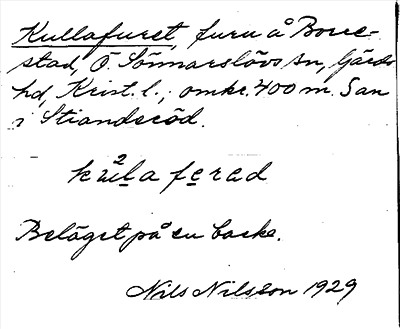 Kullafuret, furu å Borre-
stad, Ö. Sönnarslövs sn, Gärds
hd, Krist. l.; omkr. 400 m. S an
i Stianderöd.
kula ferad
Beläget på en backe.
Nils Nilsson 1929